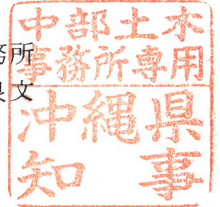 中部土木
事務所専用
沖縄県
知事
務所
文